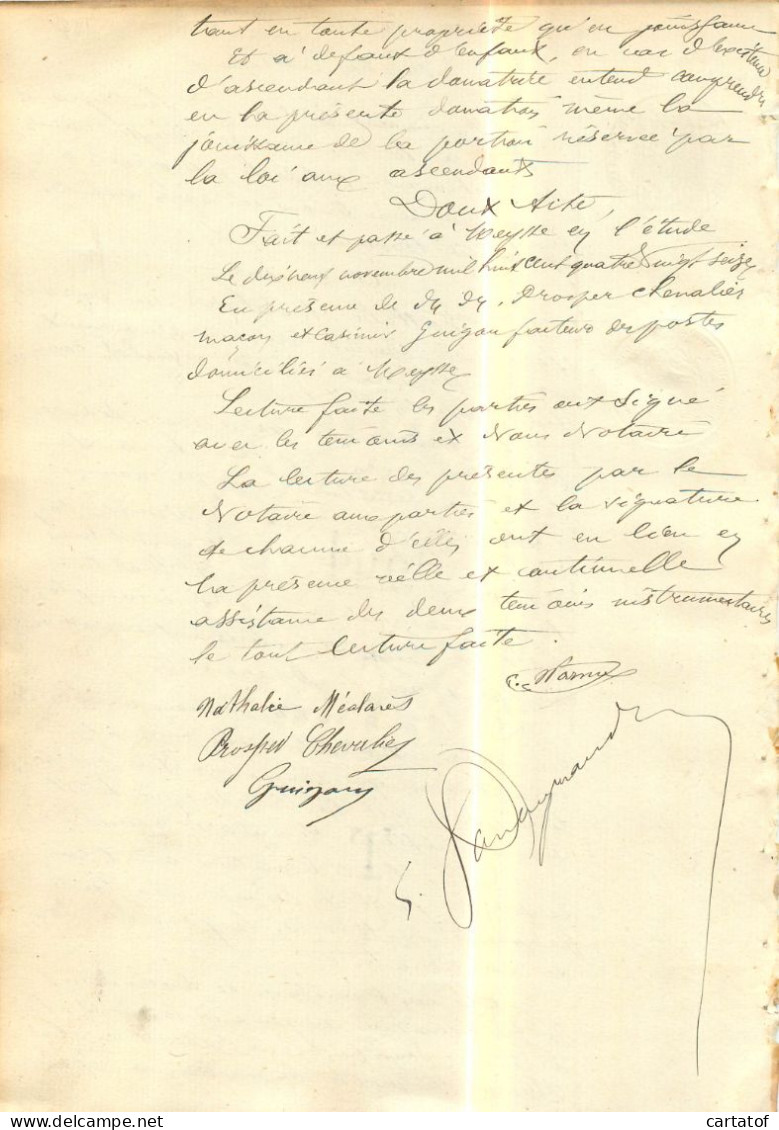 tant en toute propriété qu'en jouissance
Et à défaut d'enfant, en cas d'existence
d'ascendant la donatrice entend comprendre
en la présente donation même la
jouissance de la portion réservée par
la loi aux ascendants
Dont Acte,
Fait et passé à Meysse en l'étude
Le dix neuf novembre mil huit cent quatre vingt seize
En présence de Prosper Chevalier
maçon et Casimir Guigon facteur des postes
domiciliés à Meysse
Lecture faite les parties ont signé
avec les témoins et Nous Notaire
La lecture des présentes par le
Notaire aux parties et la signature
de chacune d'elles ont eu lieu en
la présence réelle et continuelle
assistance des deux témoins instrumentaires
le tout lecture faite.
Nathalie Méalarès
Prosper Chevalier
Guigon
cartatof